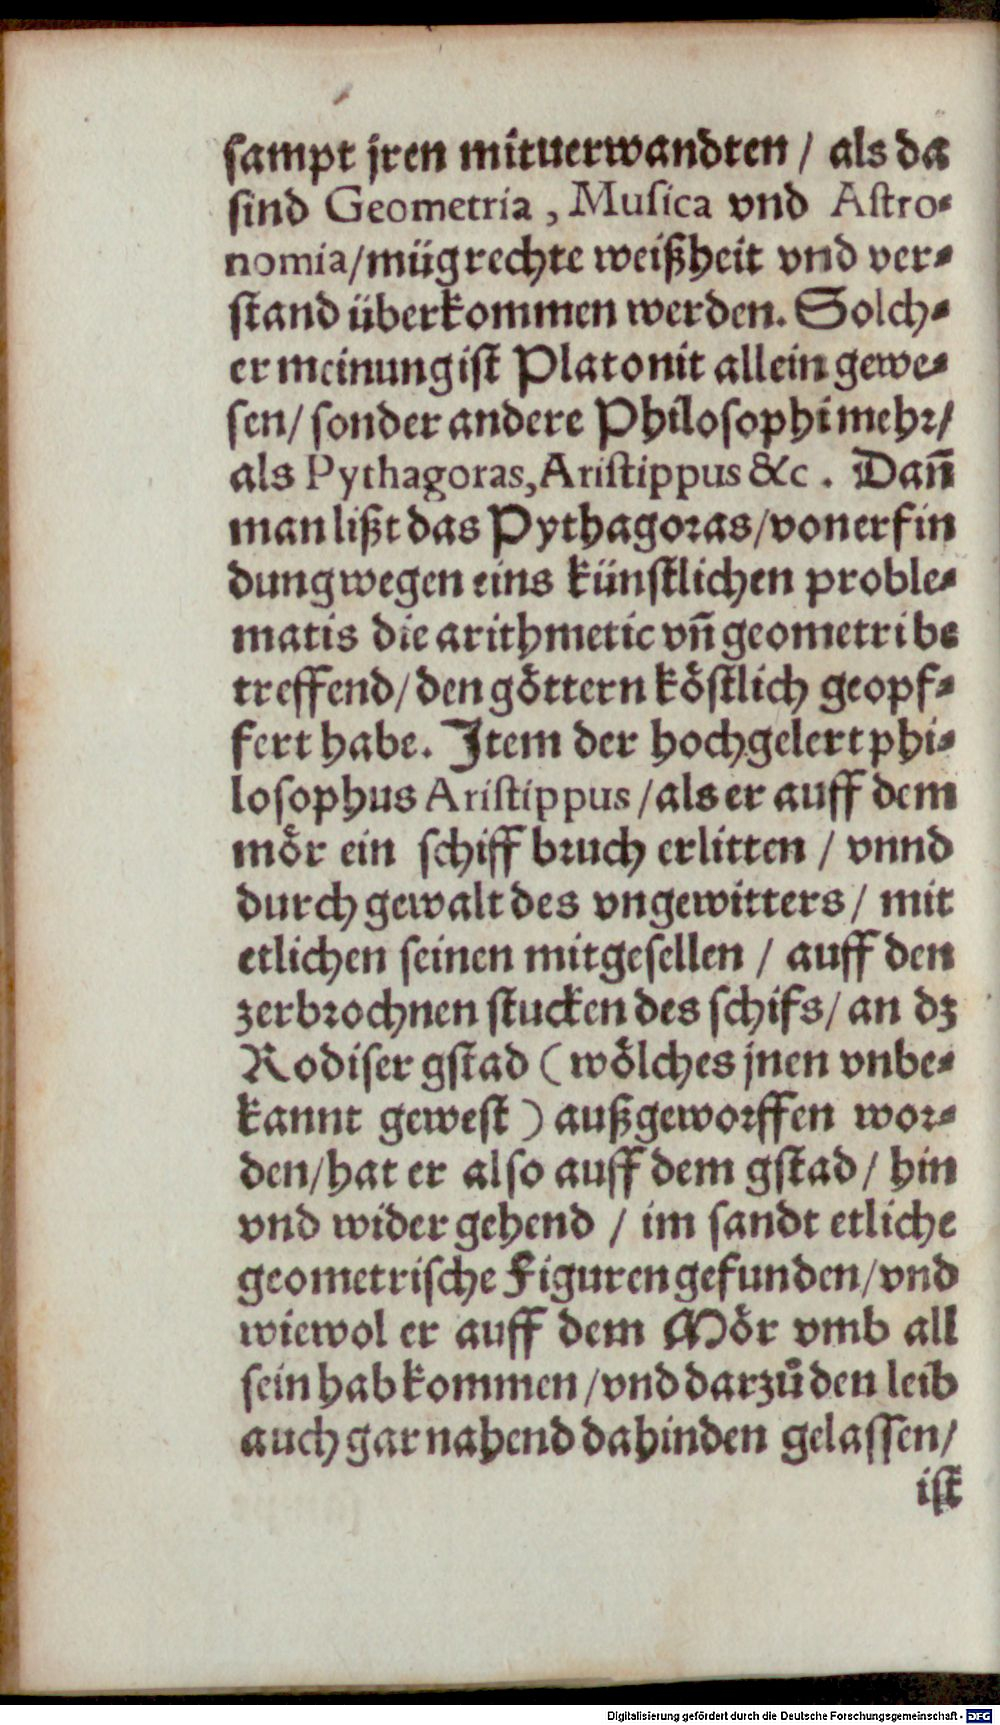 sampt jren mituerwandten / als da
sind Geometria , Musica vnd Astro-
nomia/müg rechte weißheit vnd ver-
stand überkommen werden. Solch-
er meinung ist Plato nit allein gewe-
sen/ sonder andere Philosophi mehr/
als Pythagoras, Aristippus &c . Dañ
man lißt das Pythagoras/von erfin
dung wegen eins künstlichen proble-
matis die arithmetic vñ geometri be
treffend/den göttern köstlich geopf-
fert habe. Item der hochgelert phi-
losophus Aristippus /als er auff dem
mör ein schiff bruch erlitten / vnnd
durch gewalt des vngewitters/ mit
etlichen seinen mitgesellen / auff den
zerbrochnen stucken des schifs/ an dz
Rodiser gstad ( wölches jnen vnbe-
kannt gewest ) außgeworffen wor-
den/hat er also auff dem gstad/ hin
vnd wider gehend / im sandt etliche
geometrische Figuren gefunden/vnd
wiewol er auff dem Mör vmb all
sein hab kommen /vnd darzů den leib
auch gar nahend dahinden gelassen/
ist
Digitalisierung gefördert durch die Deutsche Forschungsgemeinschaft - DFG